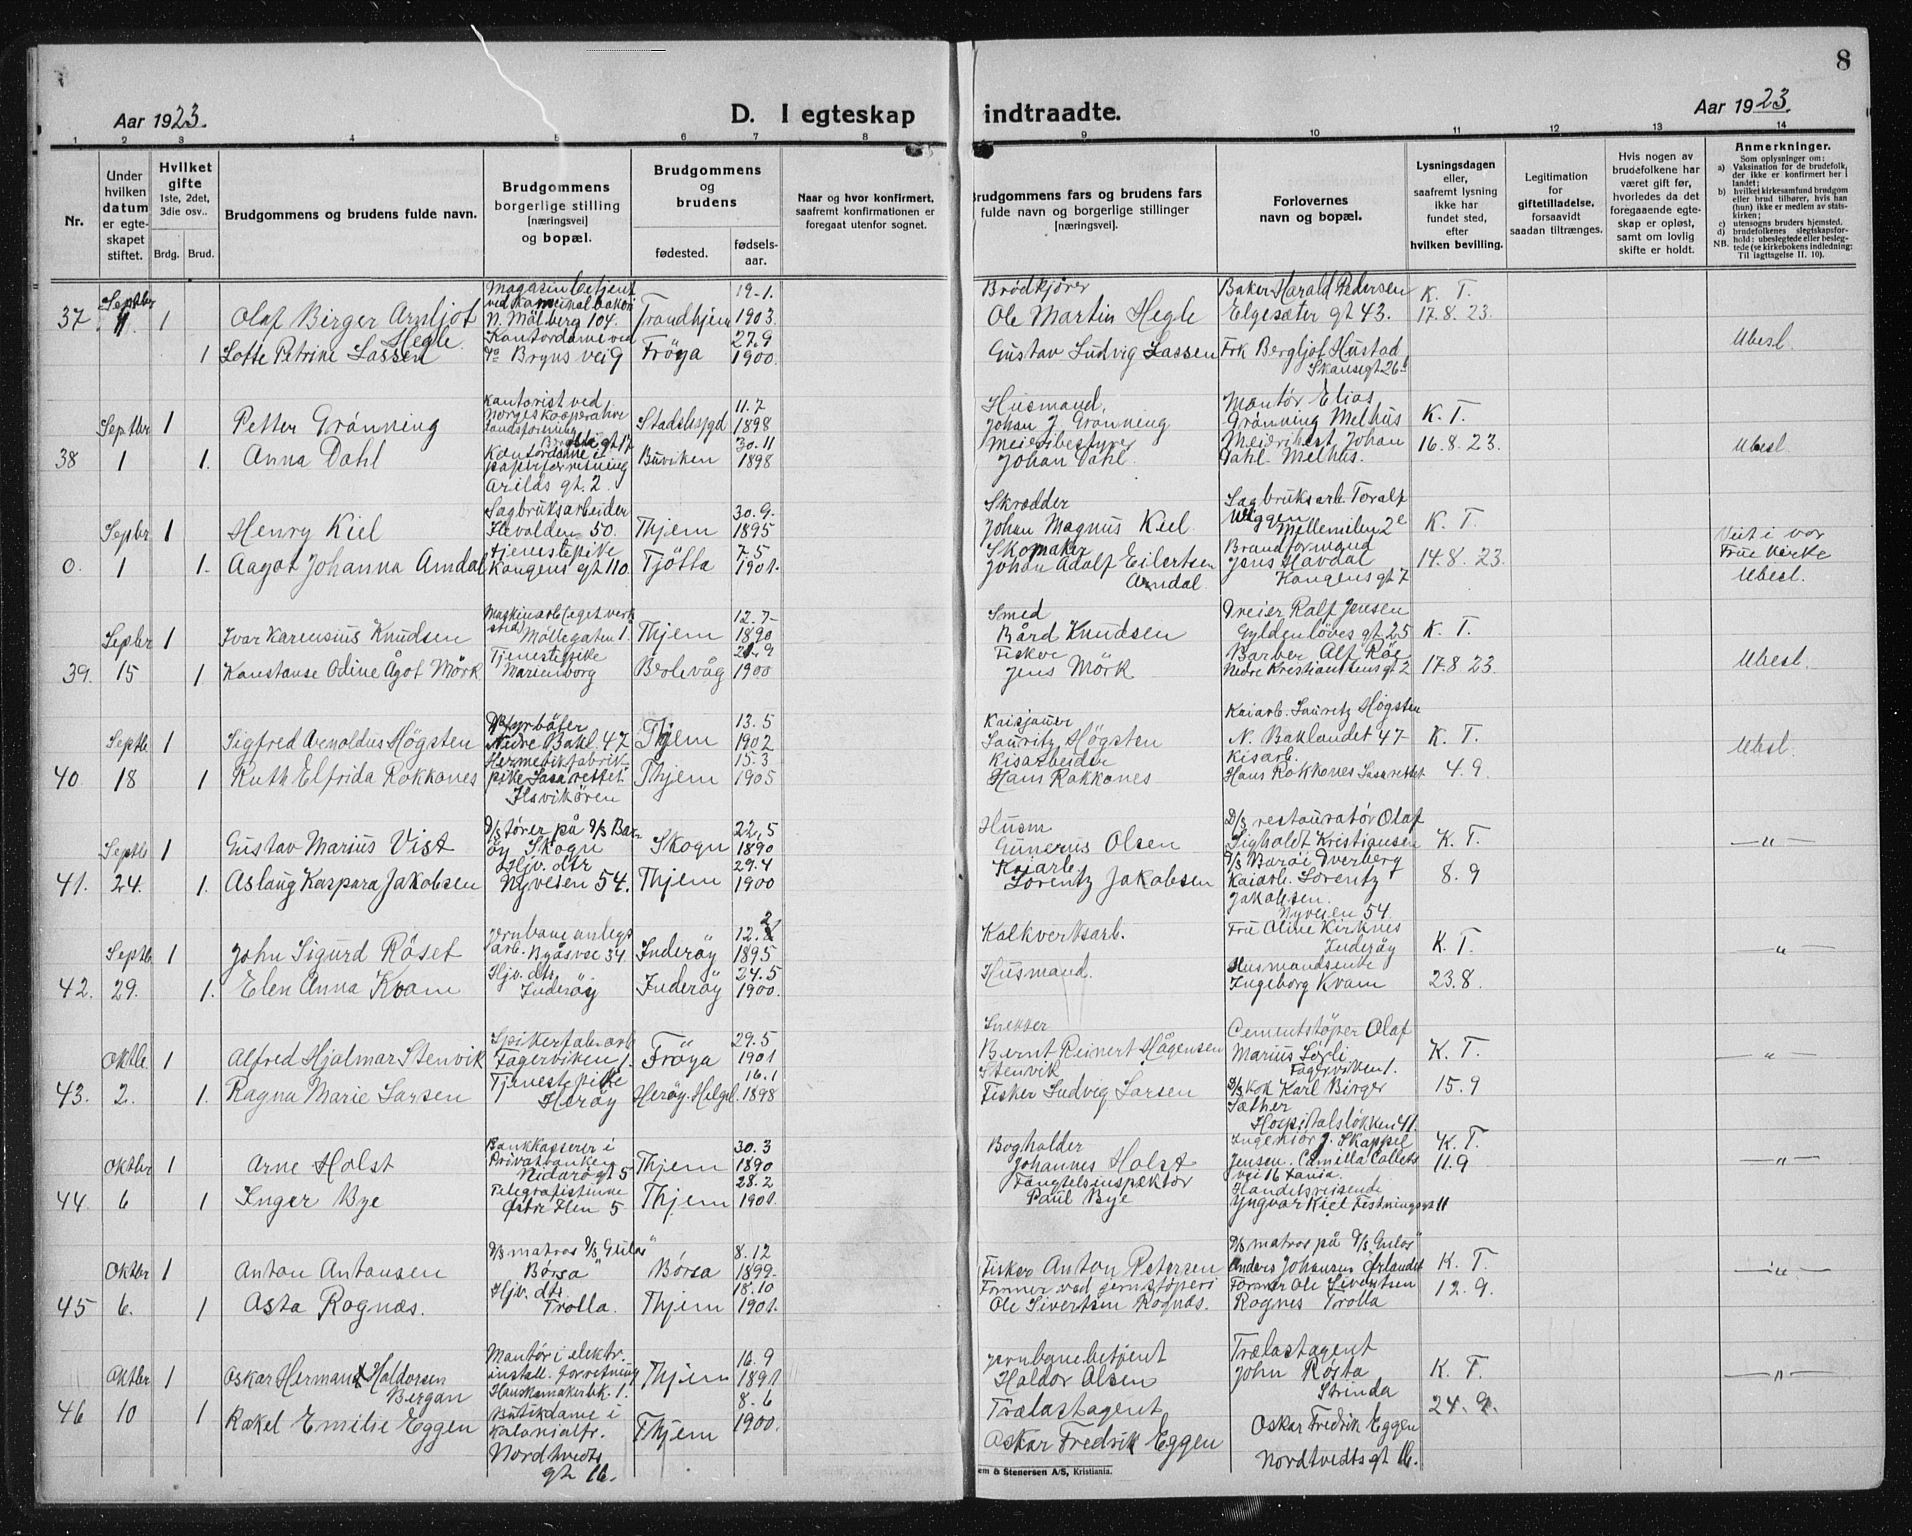 8
Aar 1923.
D. I egteskap indtraadte.
Aar 1923.
1 2 3 4 5 6 7 8 9 10 11 12 13 14
Nr.
Under hvilken datum er egteskapet stiftet.
Hvilket gifte 1ste, 2det, 3die osv..
Brdg. Brud.
Brudgommens og brudens fulde navn.
Brudgommens borgerlige stilling [næringsvei] og bopæl.
Brudgommens og brudens
fødested. fødsels-aar.
Naar og hvor konfirmert, saafremt konfirmationen er foregaat utenfor sognet.
Brudgommens fars og brudens fars fulde navn og borgerlige stillinger [næringsvei].
Forlovernes navn og bopæl.
Lysningsdagen eller, saafremt lysning ikke har fundet sted, efter hvilken bevilling.
Legitimation for giftetilladelse, forsaavidt saadan tiltrænges.
Hvis nogen av brudefolkene har været gift før, hvorledes da det foregaaende egteskap er opløst, samt om lovlig skifte er holdt.
Anmerkninger.
Som oplysninger om:
a) Vaksination for de brudefolk, der ikke er konfirmert her i landet;
b) hvilket kirkesamfund brudgom eller brud tilhører, hvis han (hun) ikke er medlem av statskirken;
c) utensogns bruders hjemsted.
d) brudefolkenes slegtskapsforhold: ubeslegtede eller beslegtede (se kirkebokens indledning; Til iagttagelse II. 10).
NB.
37 Septbr 1 Olaf Birger Arnljot Hegle Magasinbetjent N. Mölberg 104. Trondhjem 19-1. 1903. Brödkjörer Ole Martin Hegle Baker Harald Pedersen Elgesæter gt 43. K. T. 17.8.23.
1 Lotte Petrine Lassen Kontordame ved Bryns vei 9 Fröya 27.9 1900. Gustav Ludvig Lassen Frk Bergljot Hustad Skansegt 26 Ubesl.
Septbr 1 Petter Grönning Kontorist ved Norges kooperative landsforening Stadsbygd 11.7 1898 Husmand, Johan J. Grönning Montör Elias Grönning Melhus K. T.
38 1 1. Anna Dahl Kontordame i papirforretning Arilds gt. 2 Buviken 30.11 1898 Meieribestyrer Johan Dahl. Meieribest. Johan Dahl. Melhus. 16.8.23. Ubesl.
Sepbr 1 Henry Kiel Sagbruksarbeider Ilevolden 50. Thjem 30.9. 1895 Skrædder Johan Magnus Kiel Sagbruksarb. Toralf Wiggen Mellemilen 2e K. T. Viet i vor Frue kirke
0. 1 1. Aagot Johanna Arndal tjenestepike Kongens gt 110. Tjötta 7.5 1901. Skomaker Johan Adolf Eilertsen Arndal. Brandformand Jens Havdal Kongens gt 7 14.8.23. Ubesl.
Sepbr 1 Ivar Karensius Knudsen Maskinarb (eget verksted) Möllegaten 1. Thjem 12.7- 1890 Smed Bård Knudsen Dreier Ralf Jensen Gyldenlöves gt 25 K. T.
39. 15 1 Konstanse Odine Ågot Mörk Tjenestepike Marienborg Berlevåg 21.9 1900 Fisker Jens Mörk Barber Alf Röe Nedre Kristiansténs gt 2 17.8.23. Ubesl.
Septb 1 Sigfred Arnoldus Högsten D/s fyrböter Nedre Bakl. 47 Thjem 13.5 1902 Kaisjauer Lauritz Högsten Kaiarb. Lauritz Högsten N. Baklandet 47- K. T. Ubesl.
40 18 1 Ruth Elfrida Rokkones Hermetikfabrikpike Lasarettet. Ilsvikören Thjem 15.3 1905 Kisarbeider Hans Rokkones Kisarb. Hans Rokkones Lasarettet 4.9.
Septb 1 Gustav Marius Vist D/s förer på D/s Baröy Skogn Skogn 22.5 1890 Husm Gunerus Olsen D/s restauratör Olaf Sigholdt Kristiansen D/s Baröi Dverberg K. T. —"—
41. 24. 1. Aslaug Kaspara Jakobsen Hjv. dtr Nyveien 54. Thjem 29.4 1900 Kaiarb. Lorentz Jakobsen Kaiarb. Lorentz Jakobsen. Nyveien 54. 8.9
Septb. 1 John Sigurd Röset Jernbaneanlegsarb. Byåsvei 34 Inderöy 12. 1895 Kalkverksarb. Fru Oline Kirknes Inderöy K. T. "
42. 29. 1. Elen Anna Kvam Hjv. dtr. Inderöy. Inderöy 24.5 1900. Husmand. Husmandsenke Ingeborg Kvam 23.8.
Oktb. 1 Alfred Hjalmar Stenvik Spikerfab.arb Fagerviken 1. Fröya 29.5 1901 Snekker Bernt Reinert Hågensen Stenvik Cementstöper Olaf Marius Sörli Fagerviken 1. K. T. —"—
43. 2. 1. Ragna Marie Larsen Tjenestepike Heröy Heröy. Helgel. 16.1 1898 Fisker Ludvig Larsen D/s kok Karl Birger Sæther Hospitalslökken 41. 15.9
Oktbr 1 Arne Holst Bankkasserer i Privatbanken Nidarö gt 5 Thjem 30.3 1890 Bogholder Johannes Holst Ingeniör J. Skappel Jensen. Camilla Collets vei 16 Xania. K. T. 11.9 —"—
44. 6 1 Inger Bye Telegrafistinde Östre Ilen 5 Thjem 28.2 1901. Fængselsinspektör Paul Bye Handelsreisende Yngvar Kiel Festningsgt 11
Oktbr 1 Anton Antonsen D/s matros D/s "Gulos" Börsa Börsa 8.12 1899- Fisker Anton Petersen D/s matros på D/s "Gulos" Anders Johansen Örlandet K. T. —"—
45 6. 1 Asta Rognæs. Hjv. dtr. Trolla. Thjem 18.10 1901. Former ved jernstöperi Ole Sivertsen Rognæs. Former Ole Sivertsen Rognes Trolla 12.9.
Oktbr 1 Oskar Herman Haldorsen Bergan Montör i elektr. install. forretning Hanskemakerbk. 1. Thjem 16.9 1891 Jernbanebetjent Haldor Olsen Trælastagent John Rösta Strinda K. T. —"—
46 10 1 Rakel Emilie Eggen Butikdame i kolonialfr. Nordtvedts gt 16. Thjem 8.6 1900. Trælastagent Oskar Fredrik Eggen Oskar Fredrik Eggen Nordtvedts gt 16. 24.9.
em & Stenersen A/S, Kristiania.